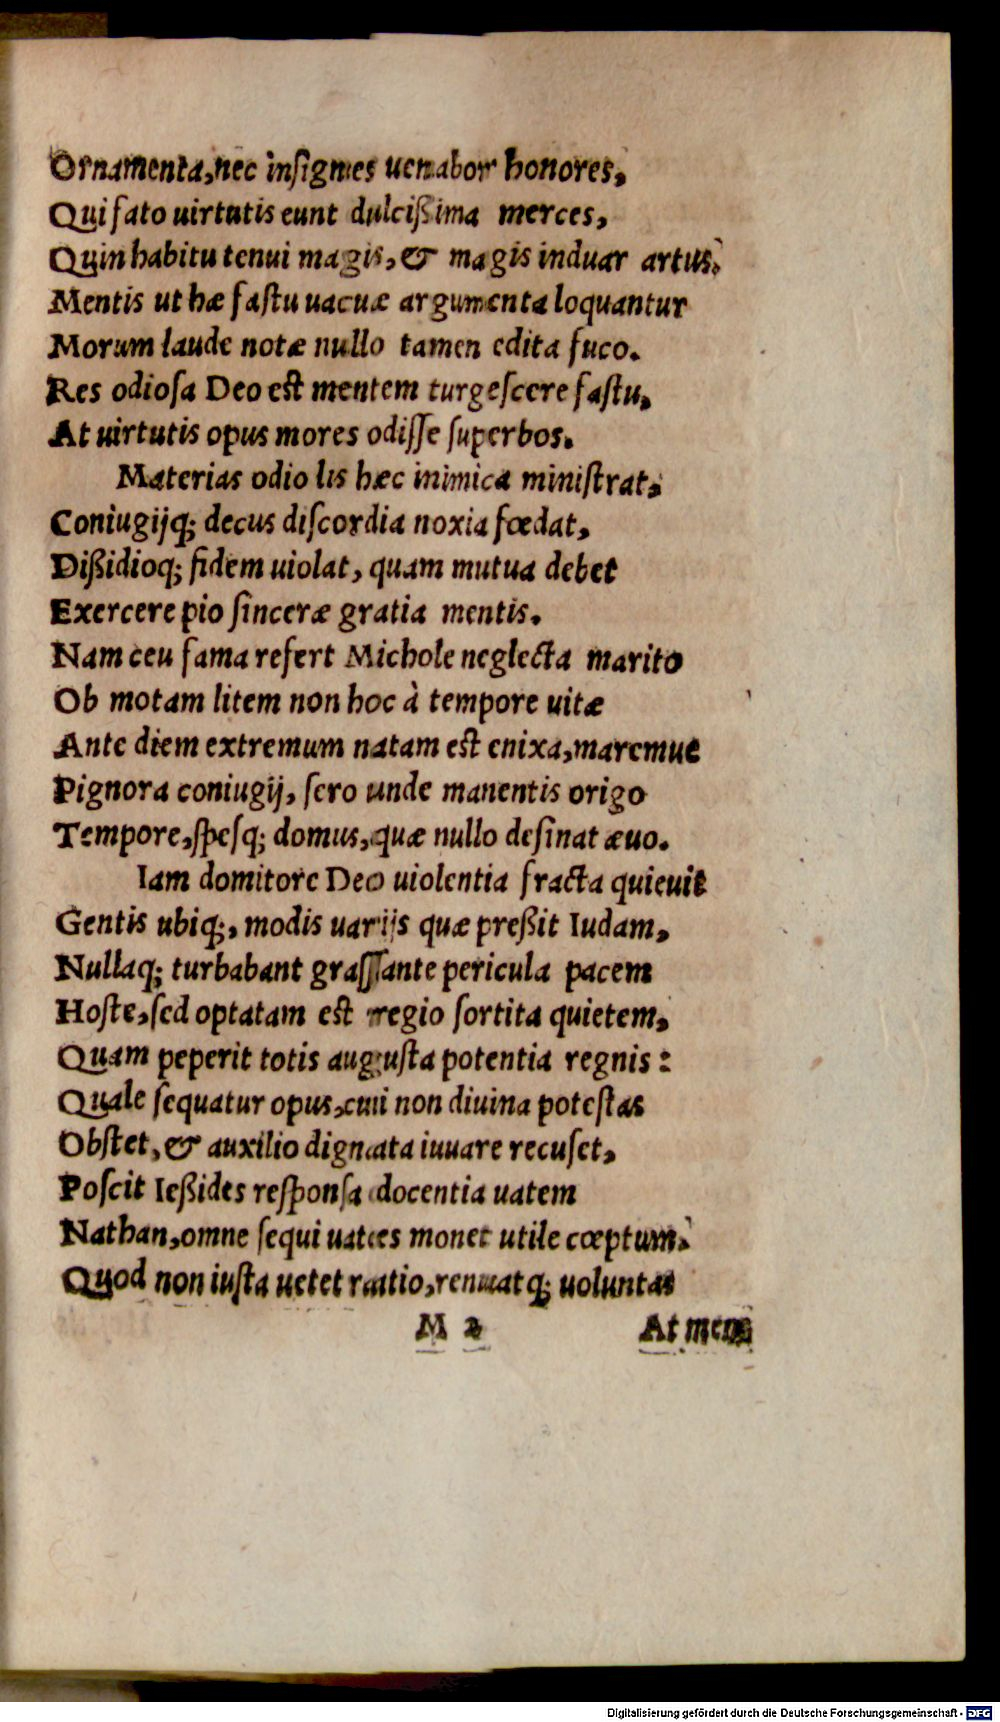 Ornamenta,nec inſignes uenabor honores,
Qui fato uirtutis eunt dulcißima merces,
Quin habitu tenui magis,& magis induar artus.
Mentis ut hæ faſtu uacuæ argumenta loquantur
Morum laude notæ nullo tamen edita fuco.
Res odioſa Deo eſt mentem turgeſcere faſtu,
At uirtutis opus mores odiſſe ſuperbos.
Materias odio lis hæc inimica miniſtrat,
Coniugijq; decus diſcordia noxia fœdat,
Dißidioq; fidem uiolat, quam mutua debet
Exercere pio ſinceræ gratia mentis.
Nam ceu fama refert Michole neglecta marito
Ob motam litem non hoc à tempore uitæ
Ante diem extremum natam eſt enixa,maremue
Pignora coniugij, ſero unde manentis origo
Tempore,ſpeſq; domus,quæ nullo deſinat æuo.
Iam domitore Deo uiolentia fracta quieuit
Gentis ubiq;, modis uarijs quæ preßit Iudam,
Nullaq; turbabant graſſante pericula pacem
Hoſte,ſed optatam eſt regio ſortita quietem,
Quam peperit totis auguſta potentia regnis:
Quale ſequatur opus,cui non diuina poteſtas
Obſtet,& auxilio dignata iuuare recuſet,
Poſcit Ießides reſponſa docentia uatem
Nathan,omne ſequi uates monet utile cœptum.
Quod non iuſta uetet ratio,renuatq; uoluntas
M 2 At mens
Digitalisierung gefördert durch die Deutsche Forschungsgemeinschaft - DFG